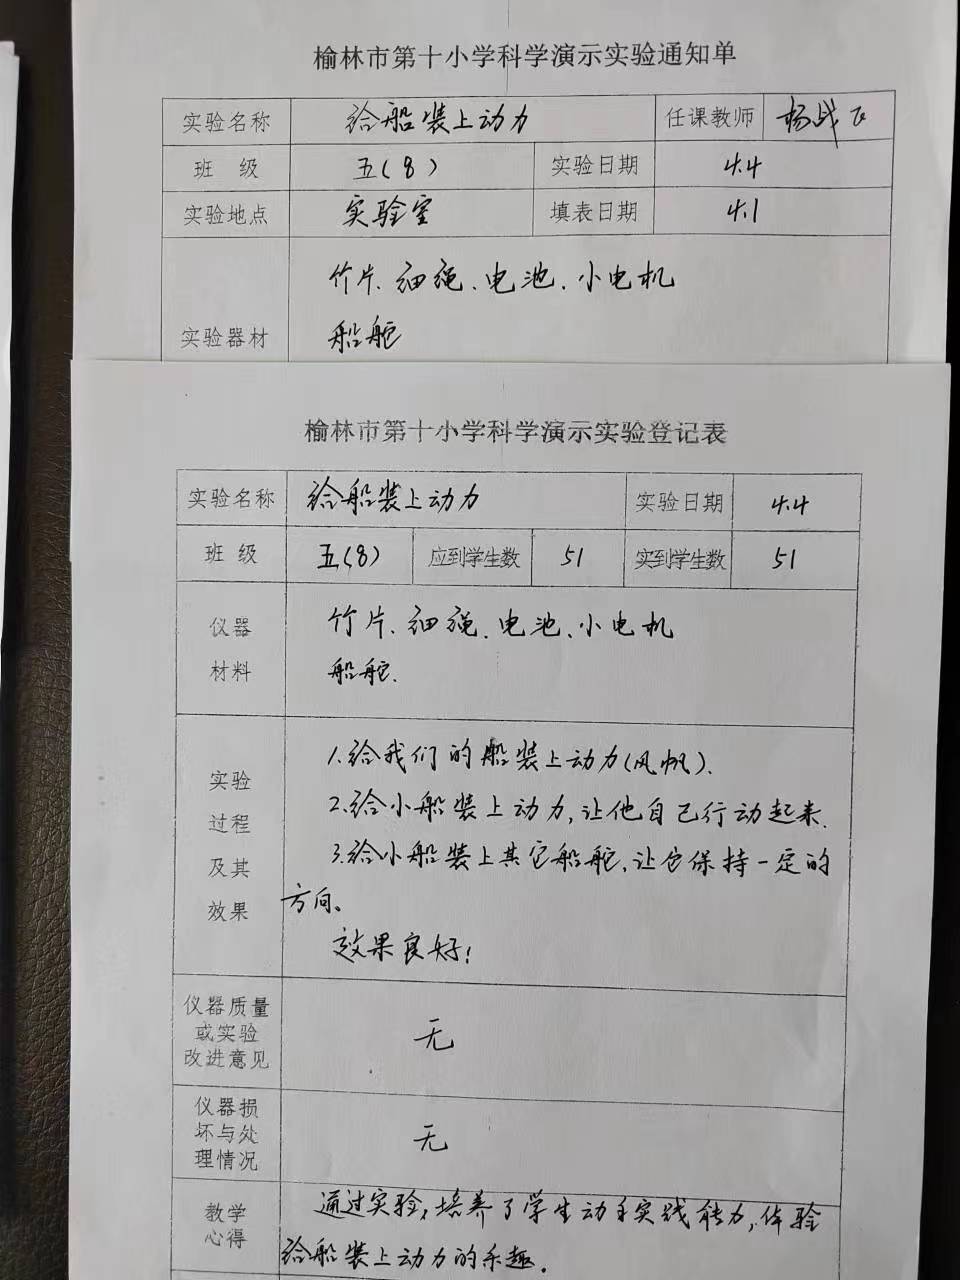 榆林市第十小学科学演示实验通知单
实验名称 给船装上动力 任课教师 杨战飞
班 级 五(8) 实验日期 4.4
实验地点 实验室 填表日期 4.1
竹片、细绳、电池、小电机
实验器材 船舵
榆林市第十小学科学演示实验登记表
实验名称 给船装上动力 实验日期 4.4
班 级 五(8) 应到学生数 51 实到学生数 51
仪器 竹片、细绳、电池、小电机
材料 船舵.
实验
过程
及其
效果
1.给我们的船装上动力(风帆).
2.给小船装上动力,让他自己行动起来.
3.给小船装上其它船舵,让它保持一定的
方向。
效果良好!
仪器质量
或实验
改进意见
无
仪器损
坏与处
理情况
无
教学
心得
通过实验,培养了学生动手实践能力,体验
给船装上动力的乐趣.